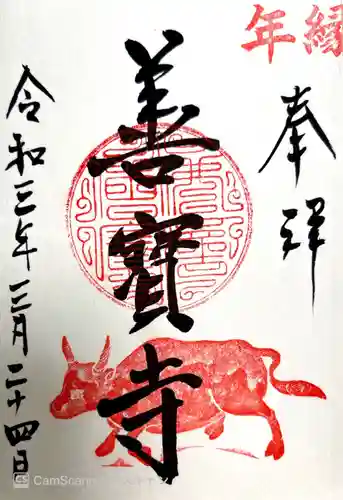 縁年
奉拝
善寳寺
令和三年三月二十四日
CamScanner